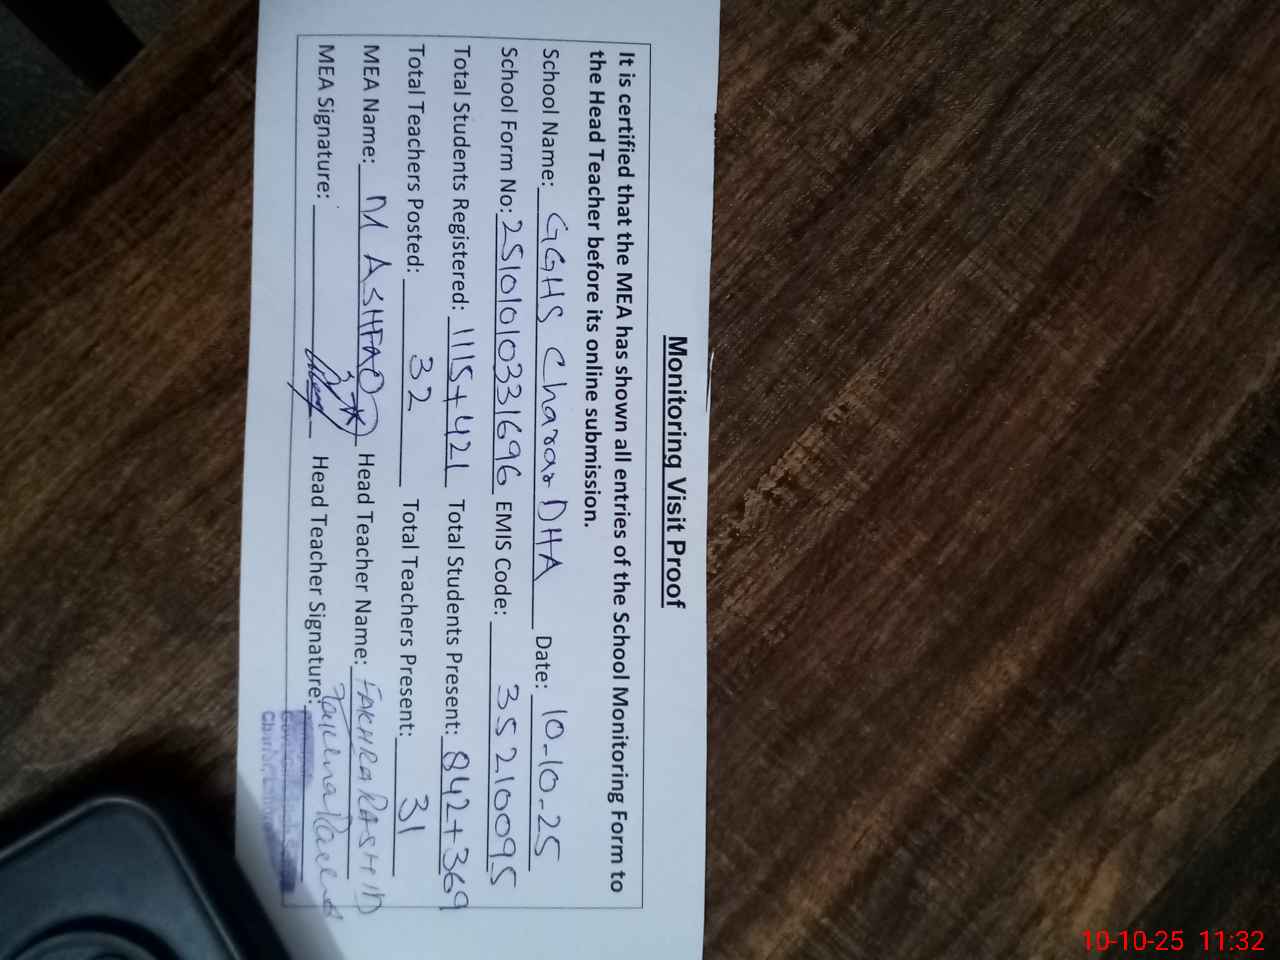 Monitoring Visit Proof
It is certified that the MEA has shown all entries of the School Monitoring Form to
the Head Teacher before its online submission.
School Name: GGHS Charar DHA Date: 10-10-25
School Form No: 25101010331696 EMIS Code: 35210095
Total Students Registered: 1115+421 Total Students Present: 842+369
Total Teachers Posted: 32 Total Teachers Present: 31
MEA Name: M ASHFAQ Head Teacher Name: FAKHRA RASHID
MEA Signature: Head Teacher Signature:
10-10-25 11:32